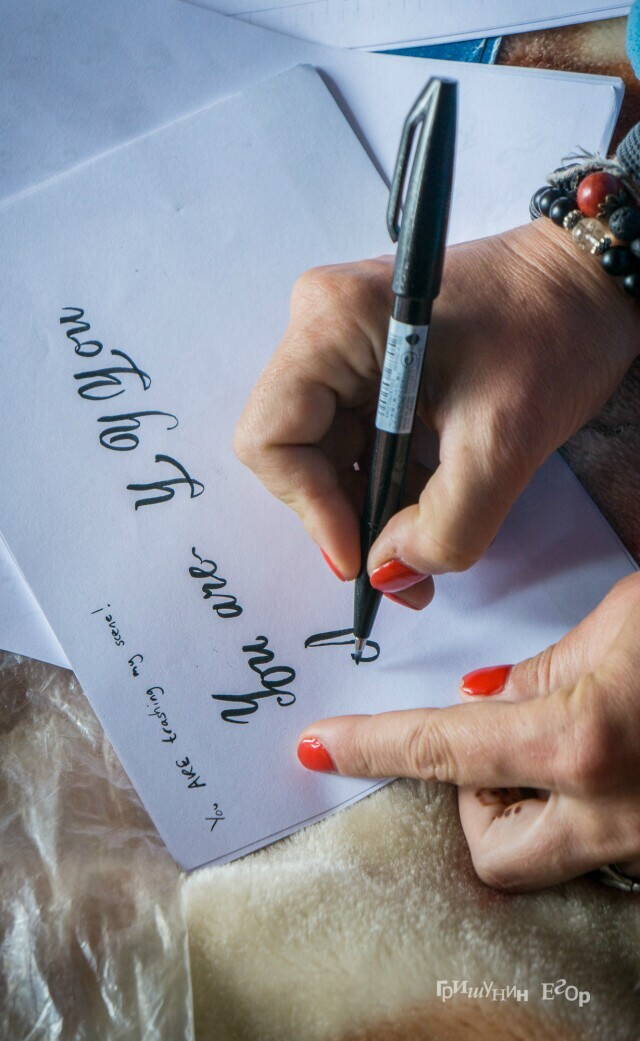 You ARE trashing my scene!
You are y oy you
Гришунин Егор